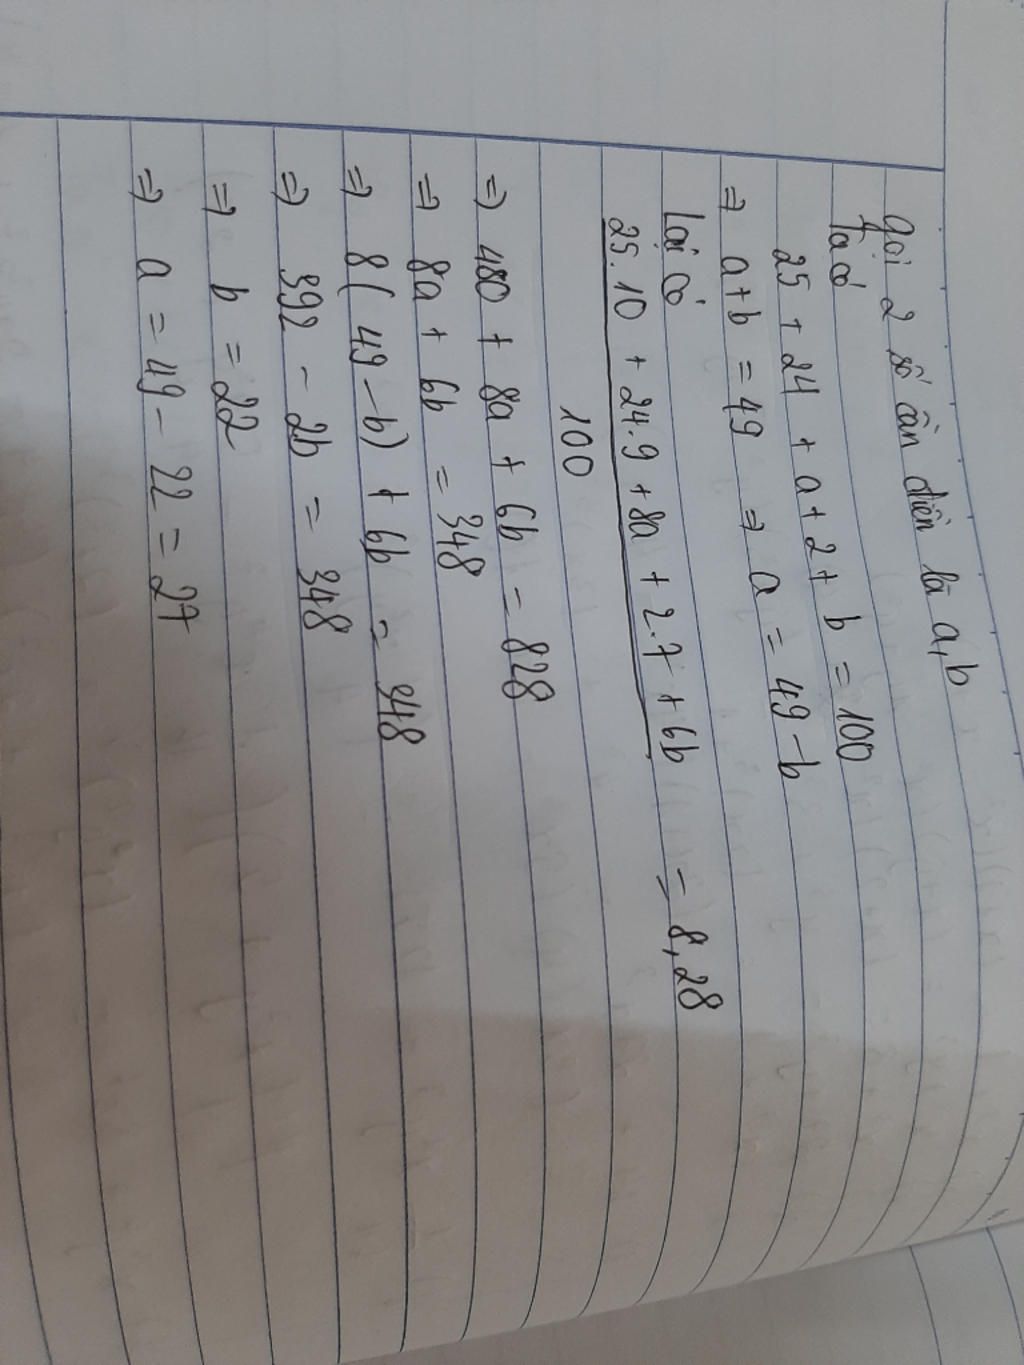 Gọi 2 số cần điền là a, b
Ta có
25 + 24 + a + 2 + b = 100
⇒ a + b = 49 ⇒ a = 49 - b
Lại có
25.10 + 24.9 + 8a + 2.7 + 6b = 8,28
100
⇒ 480 + 8a + 6b = 828
⇒ 8a + 6b = 348
⇒ 8(49 - b) + 6b = 348
⇒ 392 - 2b = 348
⇒ b = 22
⇒ a = 49 - 22 = 27